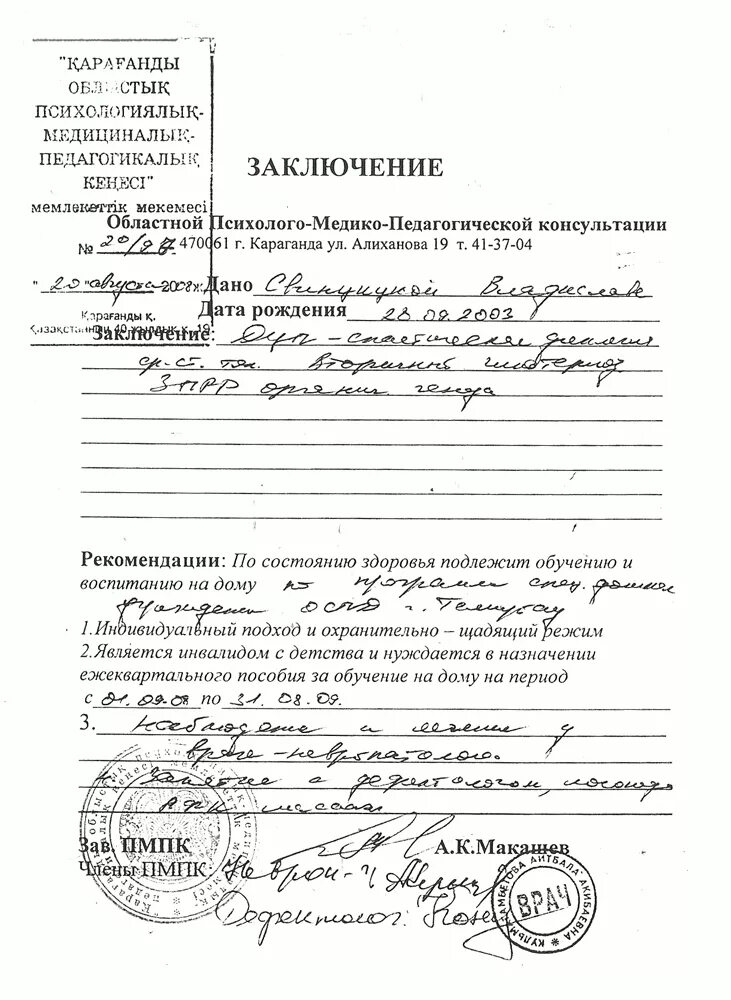 "ҚАРАҒАНДЫ
ОБЛЫСТЫҚ
ПСИХОЛОГИЯЛЫҚ-
МЕДИЦИНАЛЫҚ-
ПЕДАГОГИКАЛЫҚ
КЕҢЕСІ"
мемлекеттік мекемесі
ЗАКЛЮЧЕНИЕ
Областной Психолого-Медико-Педагогической консультации
№ 20/ 470061 г. Караганда ул. Алиханова 19 т. 41-37-04
"20" августа 2008ж. Дано Владиславе
Қарағанды қ. Дата рождения 28.09.2003
Заключение: ДЦП – спастическая диплегия
ср. ст. тяж. Вторичный
ЗПРР органич. генеза
Рекомендации: По состоянию здоровья подлежит обучению и
воспитанию на дому по программе спец. дошкол
учреждения г. Темиртау
1.Индивидуальный подход и охранительно – щадящий режим
2.Является инвалидом с детства и нуждается в назначении
ежеквартального пособия за обучение на дому на период
с 01.09.08 по 31.08.09.
3. наблюдение и лечение у
врача-невропатолога.
Занятие с дефектологом, логопед
массаж
Зав. ПМПК А.К.Макашев
Члены ПМПК:
Дефектолог:
ВРАЧ
АЙТБАЛА АКИБАЕВНА